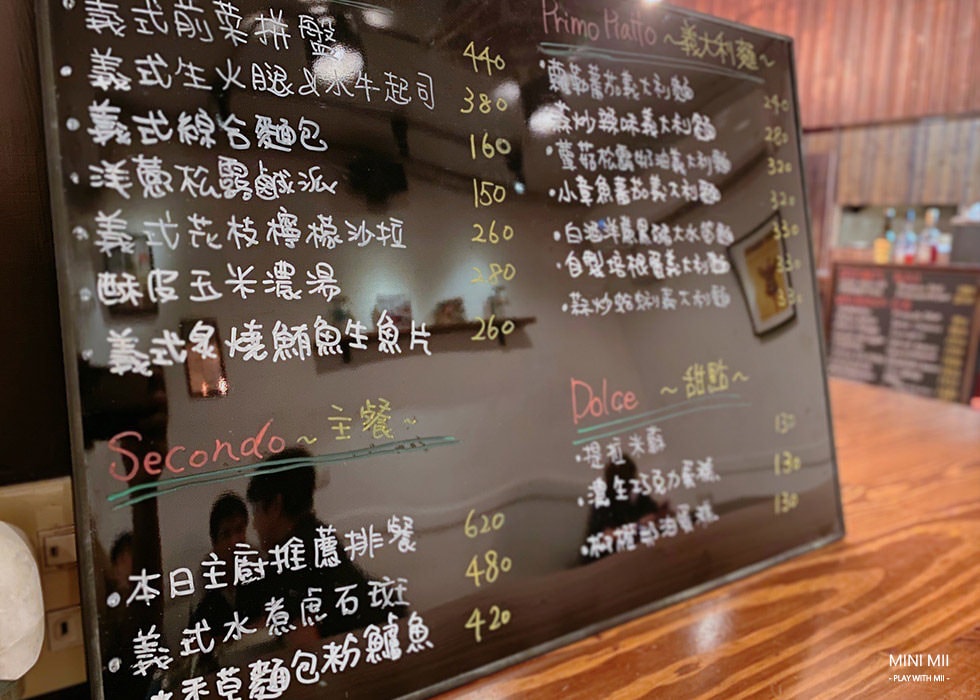 義式前菜拼盤 440
義式生火腿&水牛起司 380
義式綜合麵包 160
洋蔥松露鹹派 150
義式花枝檸檬沙拉 260
酥皮玉米濃湯 280
義式炙燒鮪魚生魚片 260
Secondo ~主餐~
本日主廚推薦排餐 620
義式水煮虎石斑 480
香草麵包粉鱸魚 420
Primo Piatto ~義大利麵~
羅勒蕃茄義大利麵 240
蒜炒辣味義大利麵 280
蘑菇松露奶油義大利麵 320
小章魚蕃茄義大利麵 320
330
自製培根蛋義大利麵 330
義大利麵
Dolce ~甜點~
提拉米蘇 130
濃生巧克力蛋糕 130
130
MINI MII
- PLAY WITH MII -